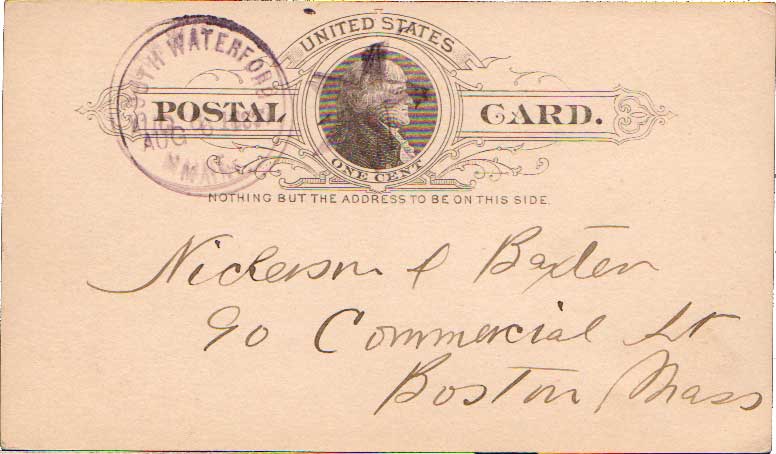 SOUTH WATERFORD
AUG
MAINE
UNITED STATES
POSTAL CARD.
ONE CENT
NOTHING BUT THE ADDRESS TO BE ON THIS SIDE.
Nickerson & Baxter
90 Commercial St
Boston Mass